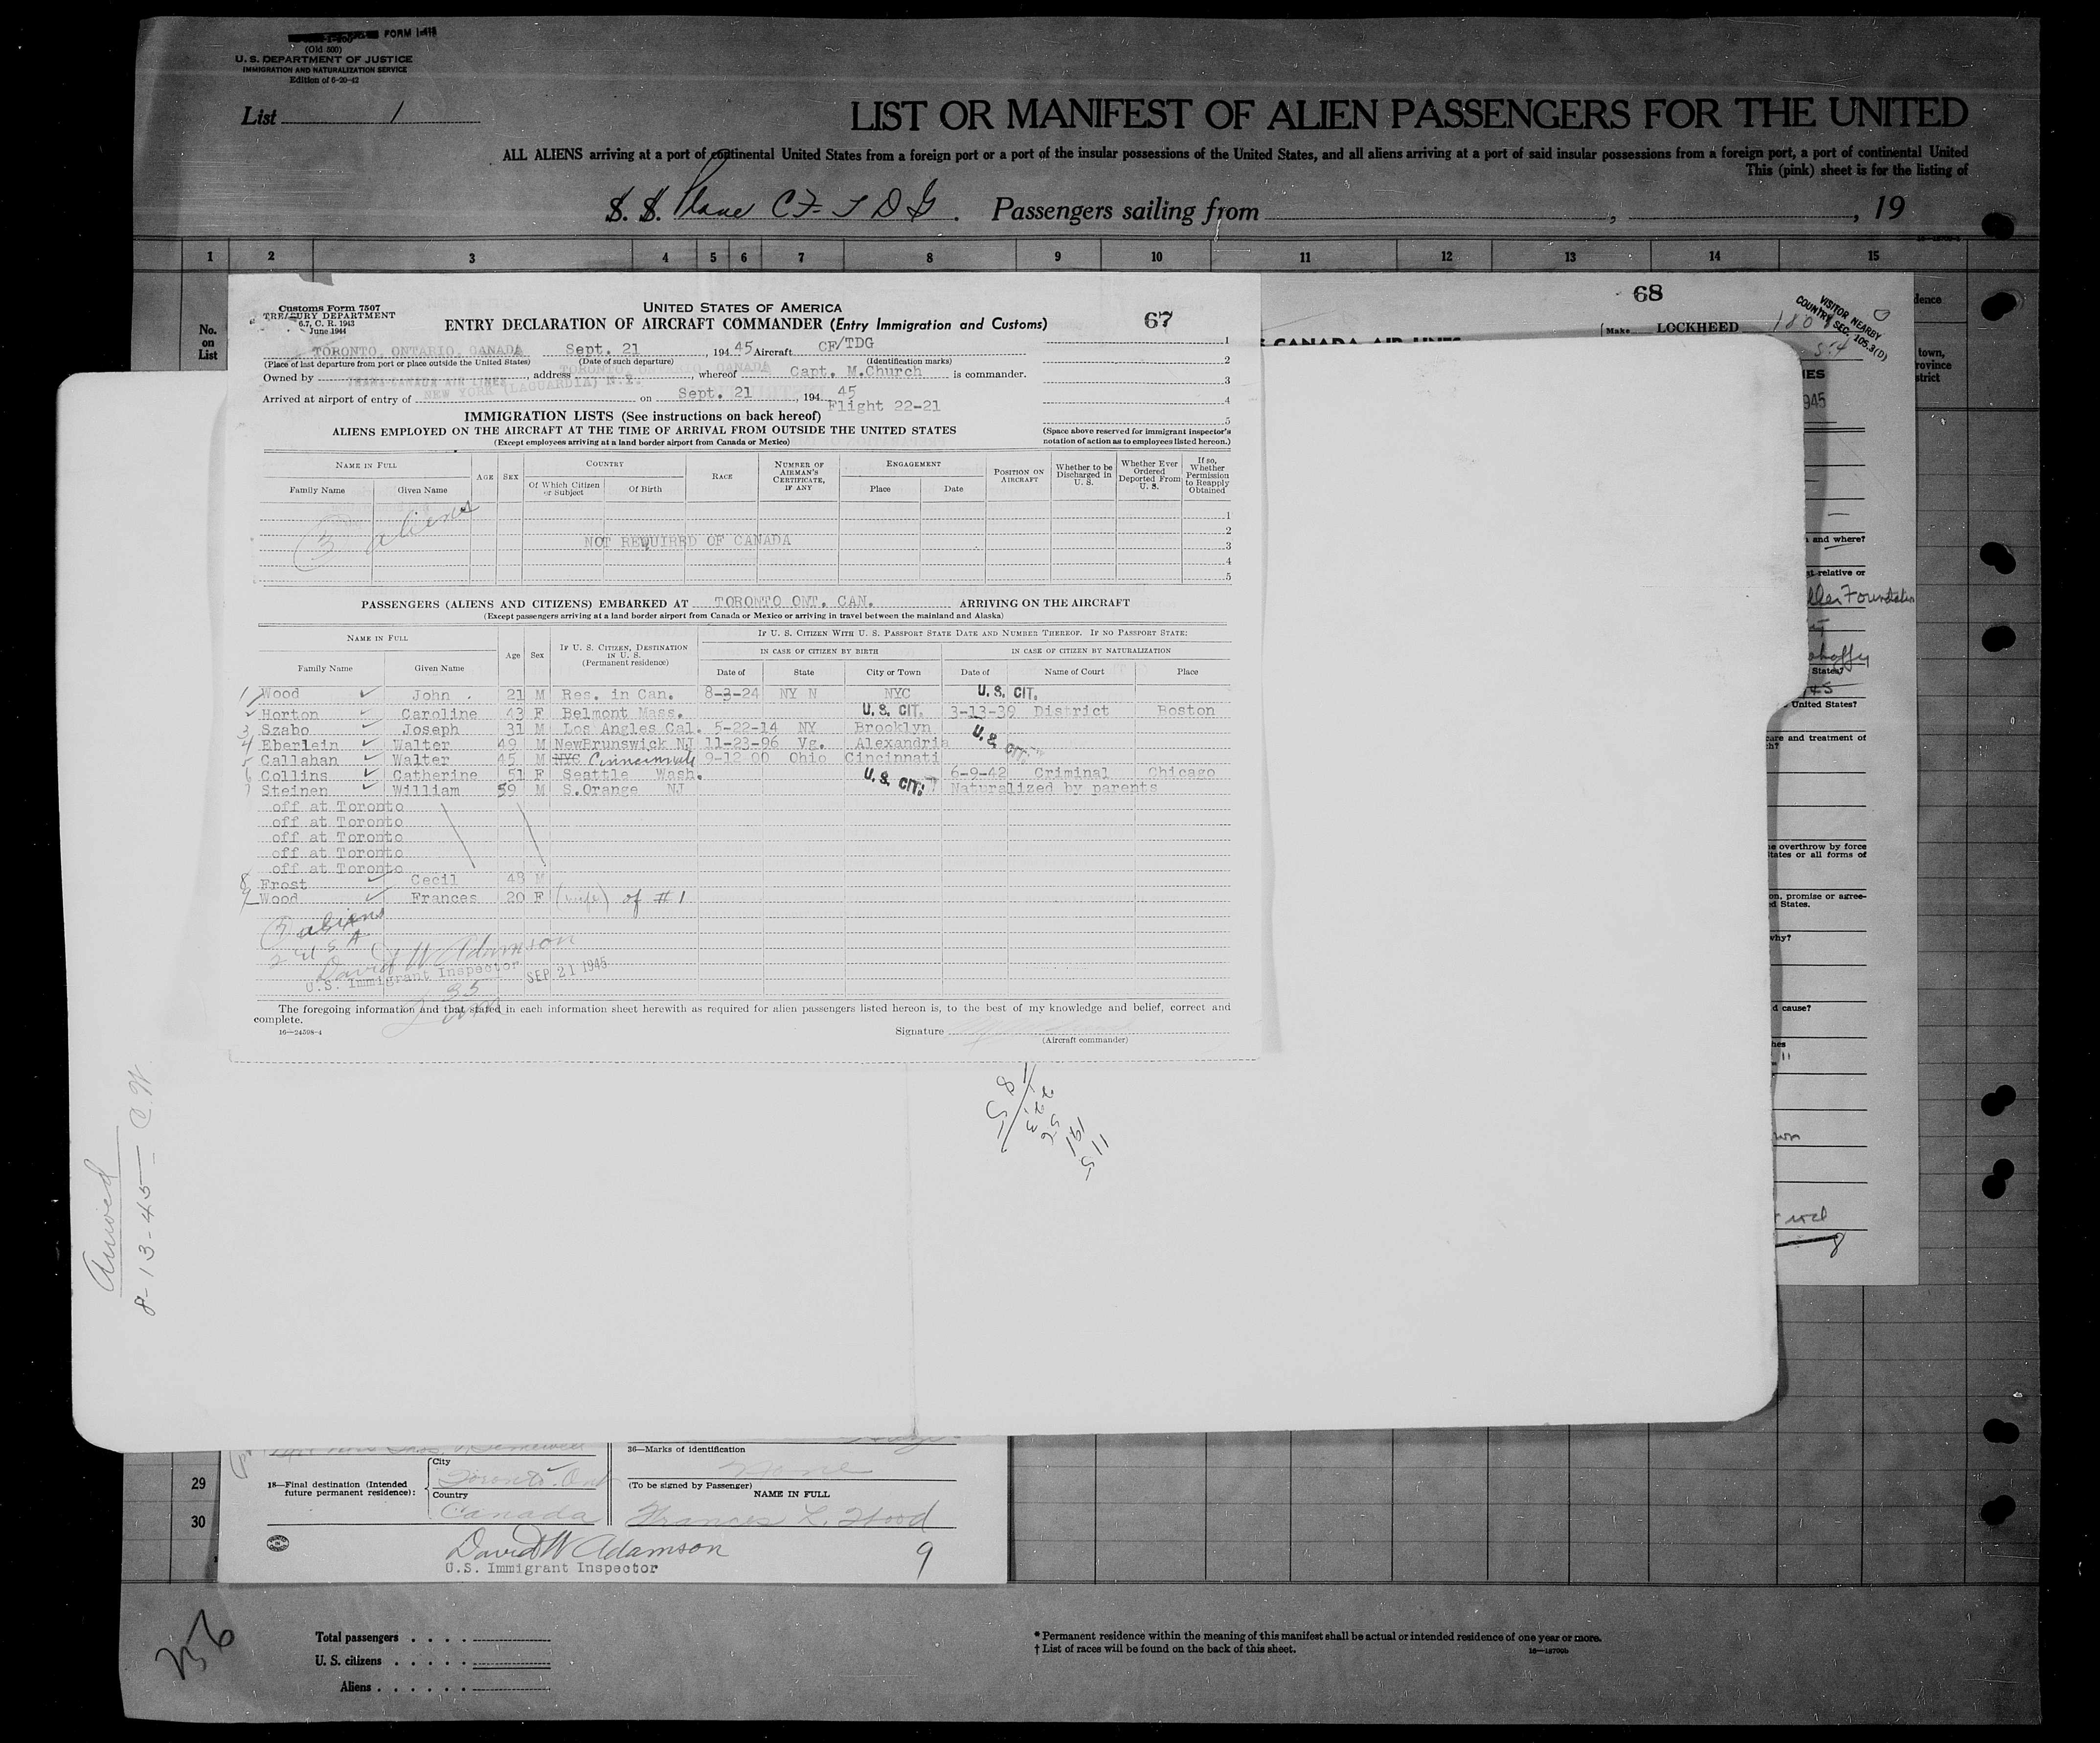 FORM I-415
(Old 500)
U. S. DEPARTMENT OF JUSTICE
IMMIGRATION AND NATURALIZATION SERVICE
Edition of 6-20-42
List 1
LIST OR MANIFEST OF ALIEN PASSENGERS FOR THE UNITED
ALL ALIENS arriving at a port of continental United States from a foreign port or a port of the insular possessions of the United States, and all aliens arriving at a port of said insular possessions from a foreign port, a port of continental United
This (pink) sheet is for the listing of
S. S. Plane CF-TDG. Passengers sailing from , , 19
1 2 3 4 5 6 7 8 9 10 11 12 13 14 15
No. on List
Customs Form 7507
TREASURY DEPARTMENT
6.7, C. R. 1943
June 1944
UNITED STATES OF AMERICA
ENTRY DECLARATION OF AIRCRAFT COMMANDER (Entry Immigration and Customs)
67
TORONTO, ONTARIO, CANADA Sept. 21 , 194 45 Aircraft CF/TDG
(Place of last departure from port or place outside the United States) (Date of such departure) (Identification marks)
Owned by TRANS-CANADA AIR LINES , address TORONTO, ONTARIO, CANADA , whereof Capt. M.Church is commander.
Arrived at airport of entry of NEW YORK (LAGUARDIA) N.Y. on Sept. 21 , 194 45
Flight 22-21
1
2
3
4
5
IMMIGRATION LISTS (See instructions on back hereof)
ALIENS EMPLOYED ON THE AIRCRAFT AT THE TIME OF ARRIVAL FROM OUTSIDE THE UNITED STATES
(Except employees arriving at a land border airport from Canada or Mexico)
(Space above reserved for immigrant inspector's notation of action as to employees listed hereon.)
NAME IN FULL
Family Name Given Name
AGE SEX
COUNTRY
Of Which Citizen or Subject Of Birth
RACE
NUMBER OF AIRMAN'S CERTIFICATE, IF ANY
ENGAGEMENT
Place Date
POSITION ON AIRCRAFT
Whether to be Discharged in U. S.
Whether Ever Ordered Deported From U. S.
If so, Whether Permission to Reapply Obtained
3 aliens
NOT REQUIRED OF CANADA
1
2
3
4
5
PASSENGERS (ALIENS AND CITIZENS) EMBARKED AT TORONTO ONT. CAN. ARRIVING ON THE AIRCRAFT
(Except passengers arriving at a land border airport from Canada or Mexico or arriving in travel between the mainland and Alaska)
NAME IN FULL
Family Name Given Name
Age Sex
IF U. S. CITIZEN, DESTINATION IN U. S. (Permanent residence)
IF U. S. CITIZEN WITH U. S. PASSPORT STATE DATE AND NUMBER THEREOF. IF NO PASSPORT STATE:
IN CASE OF CITIZEN BY BIRTH IN CASE OF CITIZEN BY NATURALIZATION
Date of State City or Town Date of Name of Court Place
1 Wood John 21 M Res. in Can. 8-3-24 NY N NYC U. S. CIT.
2 Horton Caroline 43 F Belmont Mass. U. S. CIT. 3-13-39 District Boston
3 Szabo Joseph 31 M Los Angles Cal. 5-22-14 NY Brooklyn
4 Eberlein Walter 49 M NewBrunswick NJ 11-23-96 Vg. Alexandria U. S. CIT.
5 Callahan Walter 45 M NYC Cincinnati 9-12-00 Ohio Cincinnati
6 Collins Catherine 51 F Seattle Wash. U. S. CIT. 6-9-42 Criminal Chicago
7 Steinen William 59 M S.Orange NJ Naturalized by parents
off at Toronto
off at Toronto
off at Toronto
off at Toronto
off at Toronto
8 Frost Cecil 48 M
9 Wood Frances 20 F (wife) of #1
aliens
U S A
David W Adamson
U.S. Immigrant Inspector SEP 21 1945
35
The foregoing information and that stated in each information sheet herewith as required for alien passengers listed hereon is, to the best of my knowledge and belief, correct and
complete.
16—24598-4
Signature
(Aircraft commander)
68
Make LOCKHEED
VISITOR NEARBY
COUNTRY SEC. 105.3(D)
945
and where?
relative or
States?
United States?
care and treatment of
overthrow by force
States or all forms of
on, promise or agree-
d States.
why?
d cause?
dence
town,
rovince
strict
Arrived
8-13-45 C.W.
36—Marks of identification
None
18—Final destination (Intended future permanent residence):
City
Toronto. Ont
Country
Canada
(To be signed by Passenger)
NAME IN FULL
Frances L. Wood
David W Adamson
U.S. Immigrant Inspector
9
29
30
Total passengers
U. S. citizens
Aliens
* Permanent residence within the meaning of this manifest shall be actual or intended residence of one year or more.
† List of races will be found on the back of this sheet.